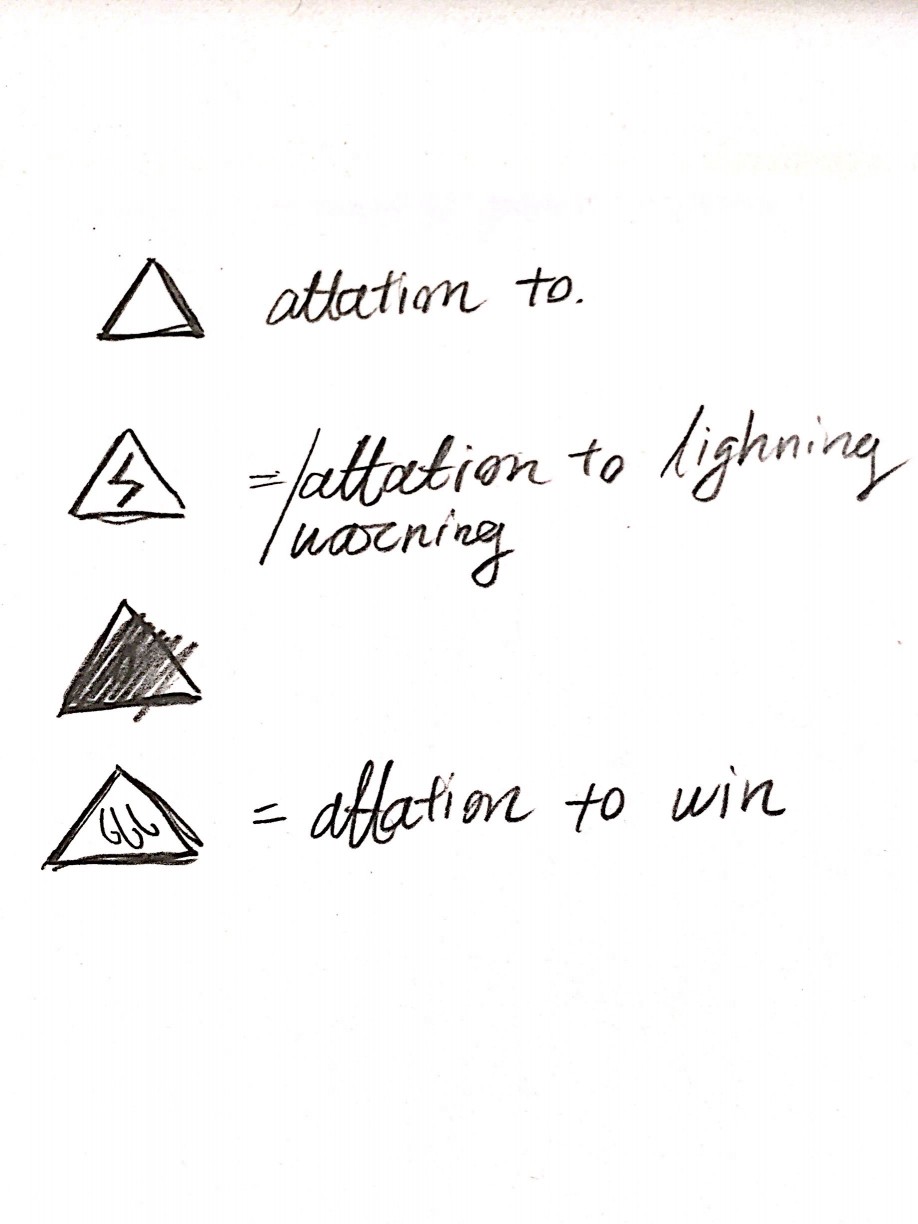 attation to.
=/attation to lighning
/warning
= attation to win